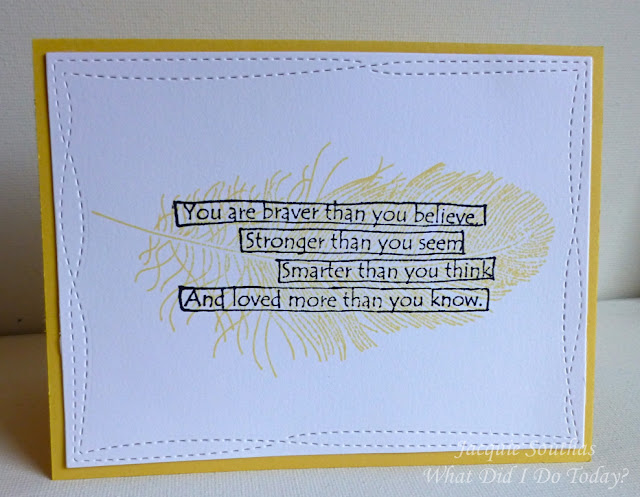 You are braver than you believe,
Stronger than you seem
Smarter than you think
And loved more than you know.
Jacquie Southas
What Did I Do Today?